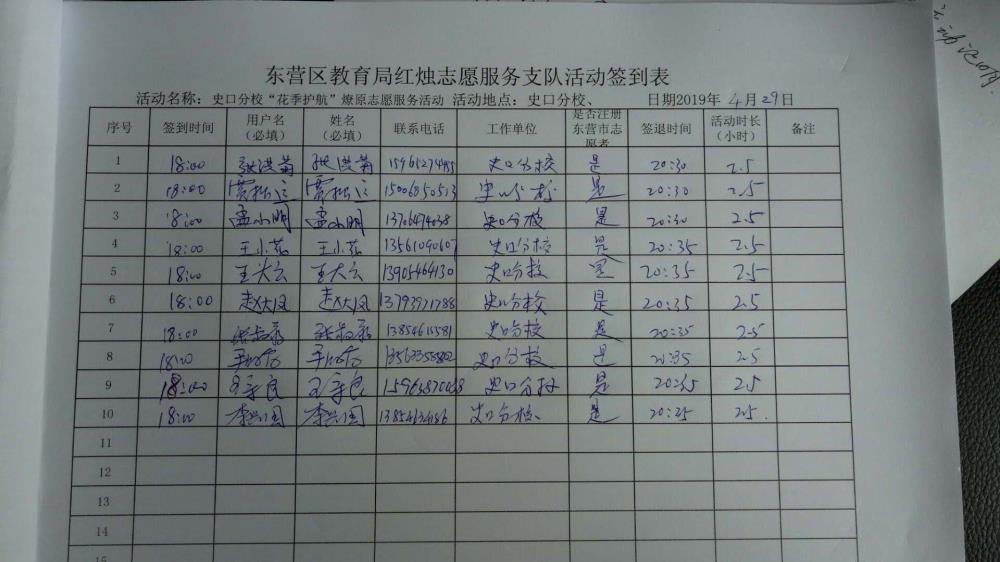 东营区教育局红烛志愿服务支队活动签到表
活动名称：史口分校“花季护航”燎原志愿服务活动 活动地点：史口分校、 日期2019年 4月29日
序号 签到时间 用户名（必填） 姓名（必填） 联系电话 工作单位 是否注册东营市志愿者 签退时间 活动时长（小时） 备注
1 18:00 张洪菊 张洪菊 史口分校 是 20:30 2.5
2 18:00 贾松运 贾松运 15006850513 史口分校 是 20:30 2.5
3 18:00 孟小明 孟小明 史口分校 是 20:30 2.5
4 18:00 王小蕊 王小蕊 13561090607 史口分校 是 20:35 2.5
5 18:00 王大云 王大云 13905464130 史口分校 是 20:35 2.5
6 18:00 赵大凤 赵大凤 史口分校 是 20:35 2.5
7 18:00 13854615581 史口分校 是 20:35 2.5
8 史口分校 是 20:35 2.5
9 18:00 史口分校 是 2.5
10 18:00 李兴国 李兴国 史口分校 是 2.5
11
12
13
14
15